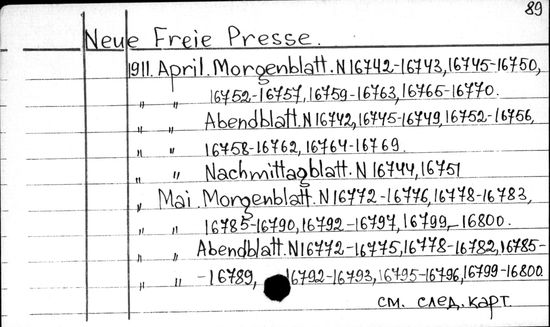 89
Neue Freie Presse.
1911. April. Morgenblatt. N 16742-16743, 16745-16750,
" " 16752-16757, 16759-16763, 16765-16770.
" " Abendblatt. N 16742, 16745-16749, 16752-16756,
" " 16758-16762, 16764-16769.
" " Nachmittagblatt. N 16744, 16751
" Mai. Morgenblatt. N 16772-16776, 16778-16783,
" " 16785-16790, 16792-16797, 16799-16800.
" " Abendblatt. N 16772-16775, 16778-16782, 16785-
" " -16789, 16792-16793, 16795-16796, 16799-16800
см. след. карт.